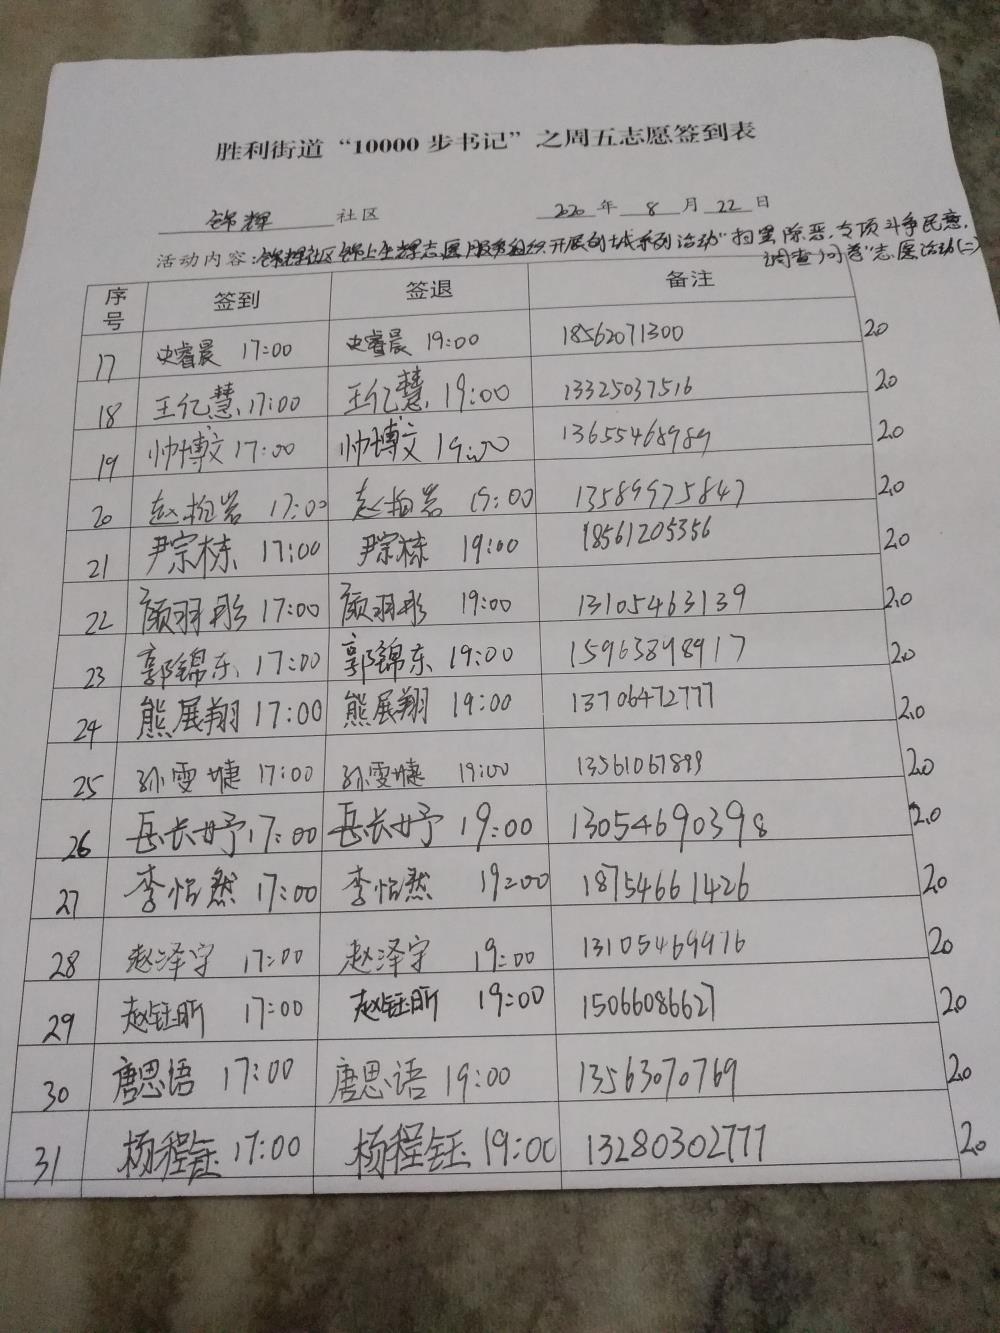 胜利街道“10000步书记”之周五志愿签到表
锦辉 社区 2020 年 8 月 22 日
活动内容：锦辉社区锦上生辉志愿服务组织开展创城系列活动“扫黑除恶，专项斗争民意，
调查问卷”志愿活动(二)
序号 签到 签退 备注
17 史睿晨 17:00 史睿晨 19:00 18562071300 2.0
18 王亿慧 17:00 王亿慧 19:00 13325037516 2.0
19 帅博文 17:00 帅博文 19:00 13655468989 2.0
20 赵柏岩 17:00 赵柏岩 19:00 13589975847 2.0
21 尹宗栋 17:00 尹宗栋 19:00 18561205356 2.0
22 颜羽彤 17:00 颜羽彤 19:00 13105463139 2.0
23 郭锦东 17:00 郭锦东 19:00 15963898917 2.0
24 熊展翔 17:00 熊展翔 19:00 13706472777 2.0
25 孙雯婕 17:00 孙雯婕 19:00 13561067899 2.0
26 岳长妤 17:00 岳长妤 19:00 13054690398 2.0
27 李怡然 17:00 李怡然 19:00 18754661426 2.0
28 赵泽宇 17:00 赵泽宇 19:00 13105469976 2.0
29 赵钰昕 17:00 赵钰昕 19:00 15066086627 2.0
30 唐思语 17:00 唐思语 19:00 13563070769 2.0
31 杨程钰 17:00 杨程钰 19:00 13280302777 2.0